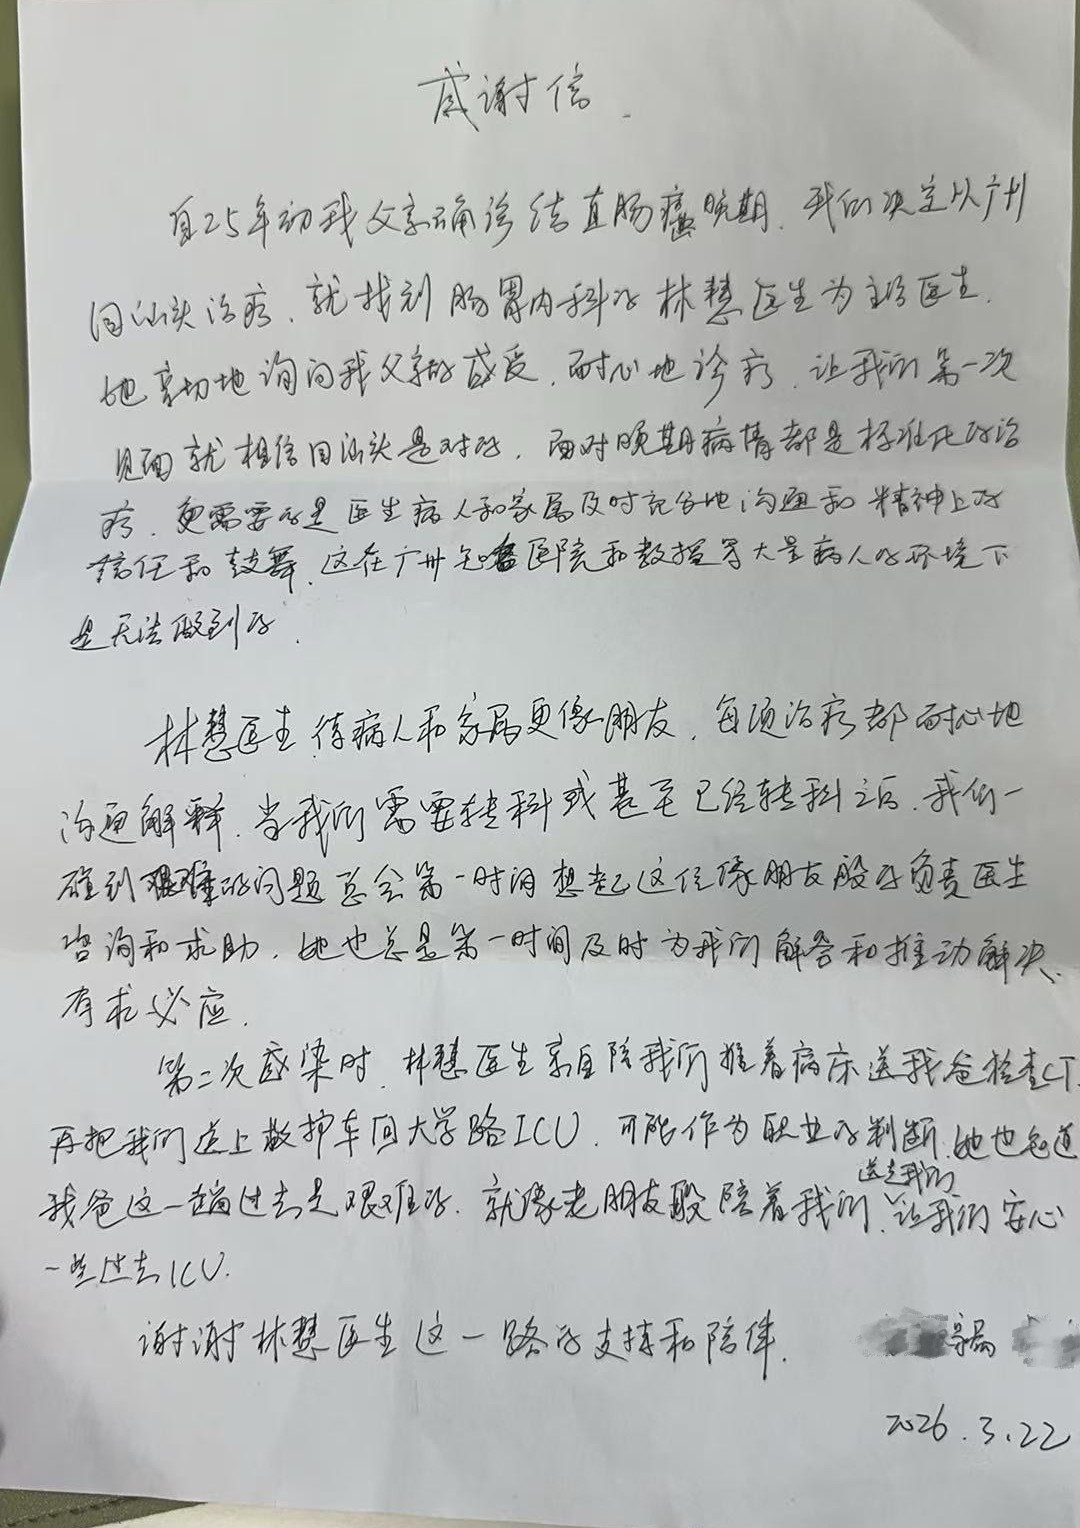 感谢信.
自25年初我父亲确诊结直肠癌晚期、我们决定从广州
回汕头治疗、就找到肠胃内科的林慧医生为主治医生.
她亲切地询问我父亲的感受、耐心地诊疗、让我们第一次
见面就相信回汕头是对的. 面对晚期病情都是标准化的治
疗、更需要的是医生病人和家属及时充分地沟通和精神上的
信任和鼓舞、这在广州知名医院和教授等大量病人的环境下
是无法做到的.
林慧医生待病人和家属更像朋友、每项治疗都耐心地
沟通解释、当我们需要转科或甚至已经转科之后、我们一
碰到艰难的问题总会第一时间想起这位像朋友般的负责医生
咨询和求助、她也总是第一时间及时为我们解答和推动解决、
有求必应.
第二次感染时、林慧医生亲自陪我们推着病床送我爸检查CT、
再把我们送上救护车回大学路ICU、可能作为职业的判断、她也知道
我爸这一趟过去是艰难的、就像老朋友般陪着我们、送走我们 让我们安心
一些过去ICU.
谢谢林慧医生这一路的支持和陪伴.
家属
2026.3.22